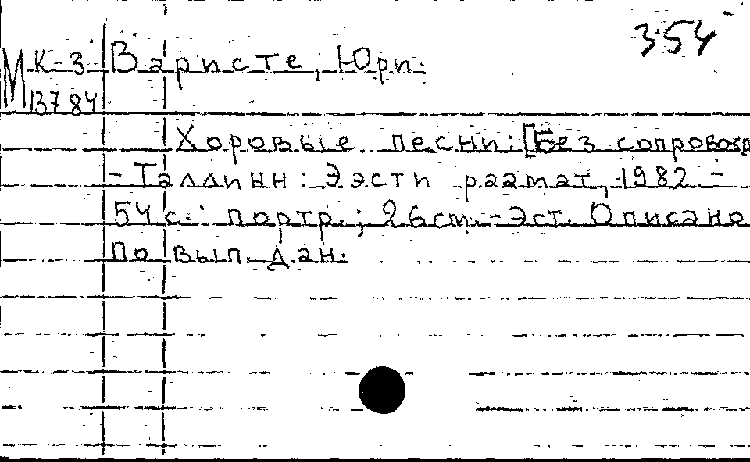 3-54
М К-3 Варисте, Юри.
13784
Хоровые песни: [Без сопровожд
- Таллинн: Ээсти раамат, 1982 -
54 с.: портр.; 26 см. - Эст. Описано
по вып. дан.